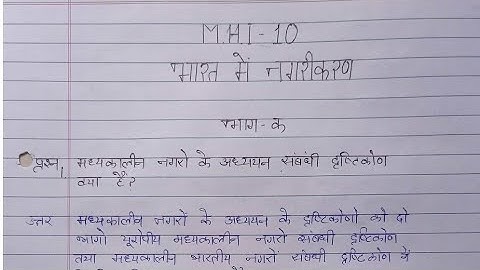 M.H.I-10
भारत में नगरीकरण
भाग-क
प्रश्न, मध्यकालीन नगरो के अध्ययन संबंधी दृष्टिकोण
क्या हैं?
उत्तर मध्यकालीन नगरों के अध्ययन के दृष्टिकोणो को दो
भागो यूरोपीय मध्यकालीन नगरो संबंधी दृष्टिकोण
तथा मध्यकालीन भारतीय नगरो संबंधी दृष्टिकोण में